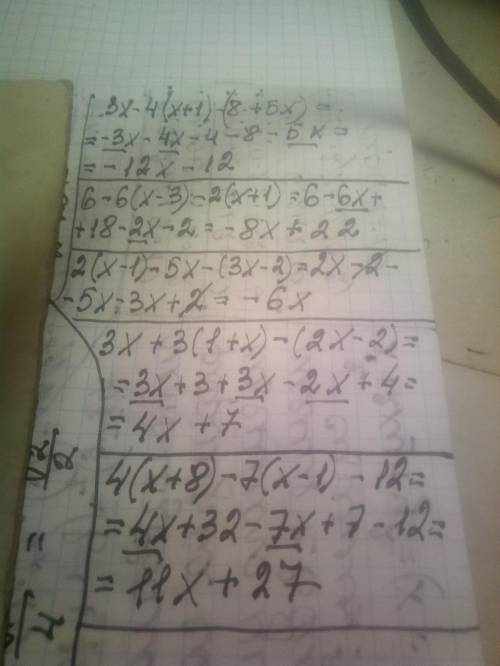 3x-4(x+1)-(8+5x)=
=-3x-4x-4-8-5x=
=-12x-12
6-6(x-3)-2(x+1)=6-6x+
+18-2x-2=-8x+22
2(x-1)-5x-(3x-2)=2x-2-
-5x-3x+2=-6x
3x+3(1+x)-(2x-2)=
=3x+3+3x-2x+4=
=4x+7
4(x+8)-7(x-1)-12=
=4x+32-7x+7-12=
=11x+27
4 = √2/2